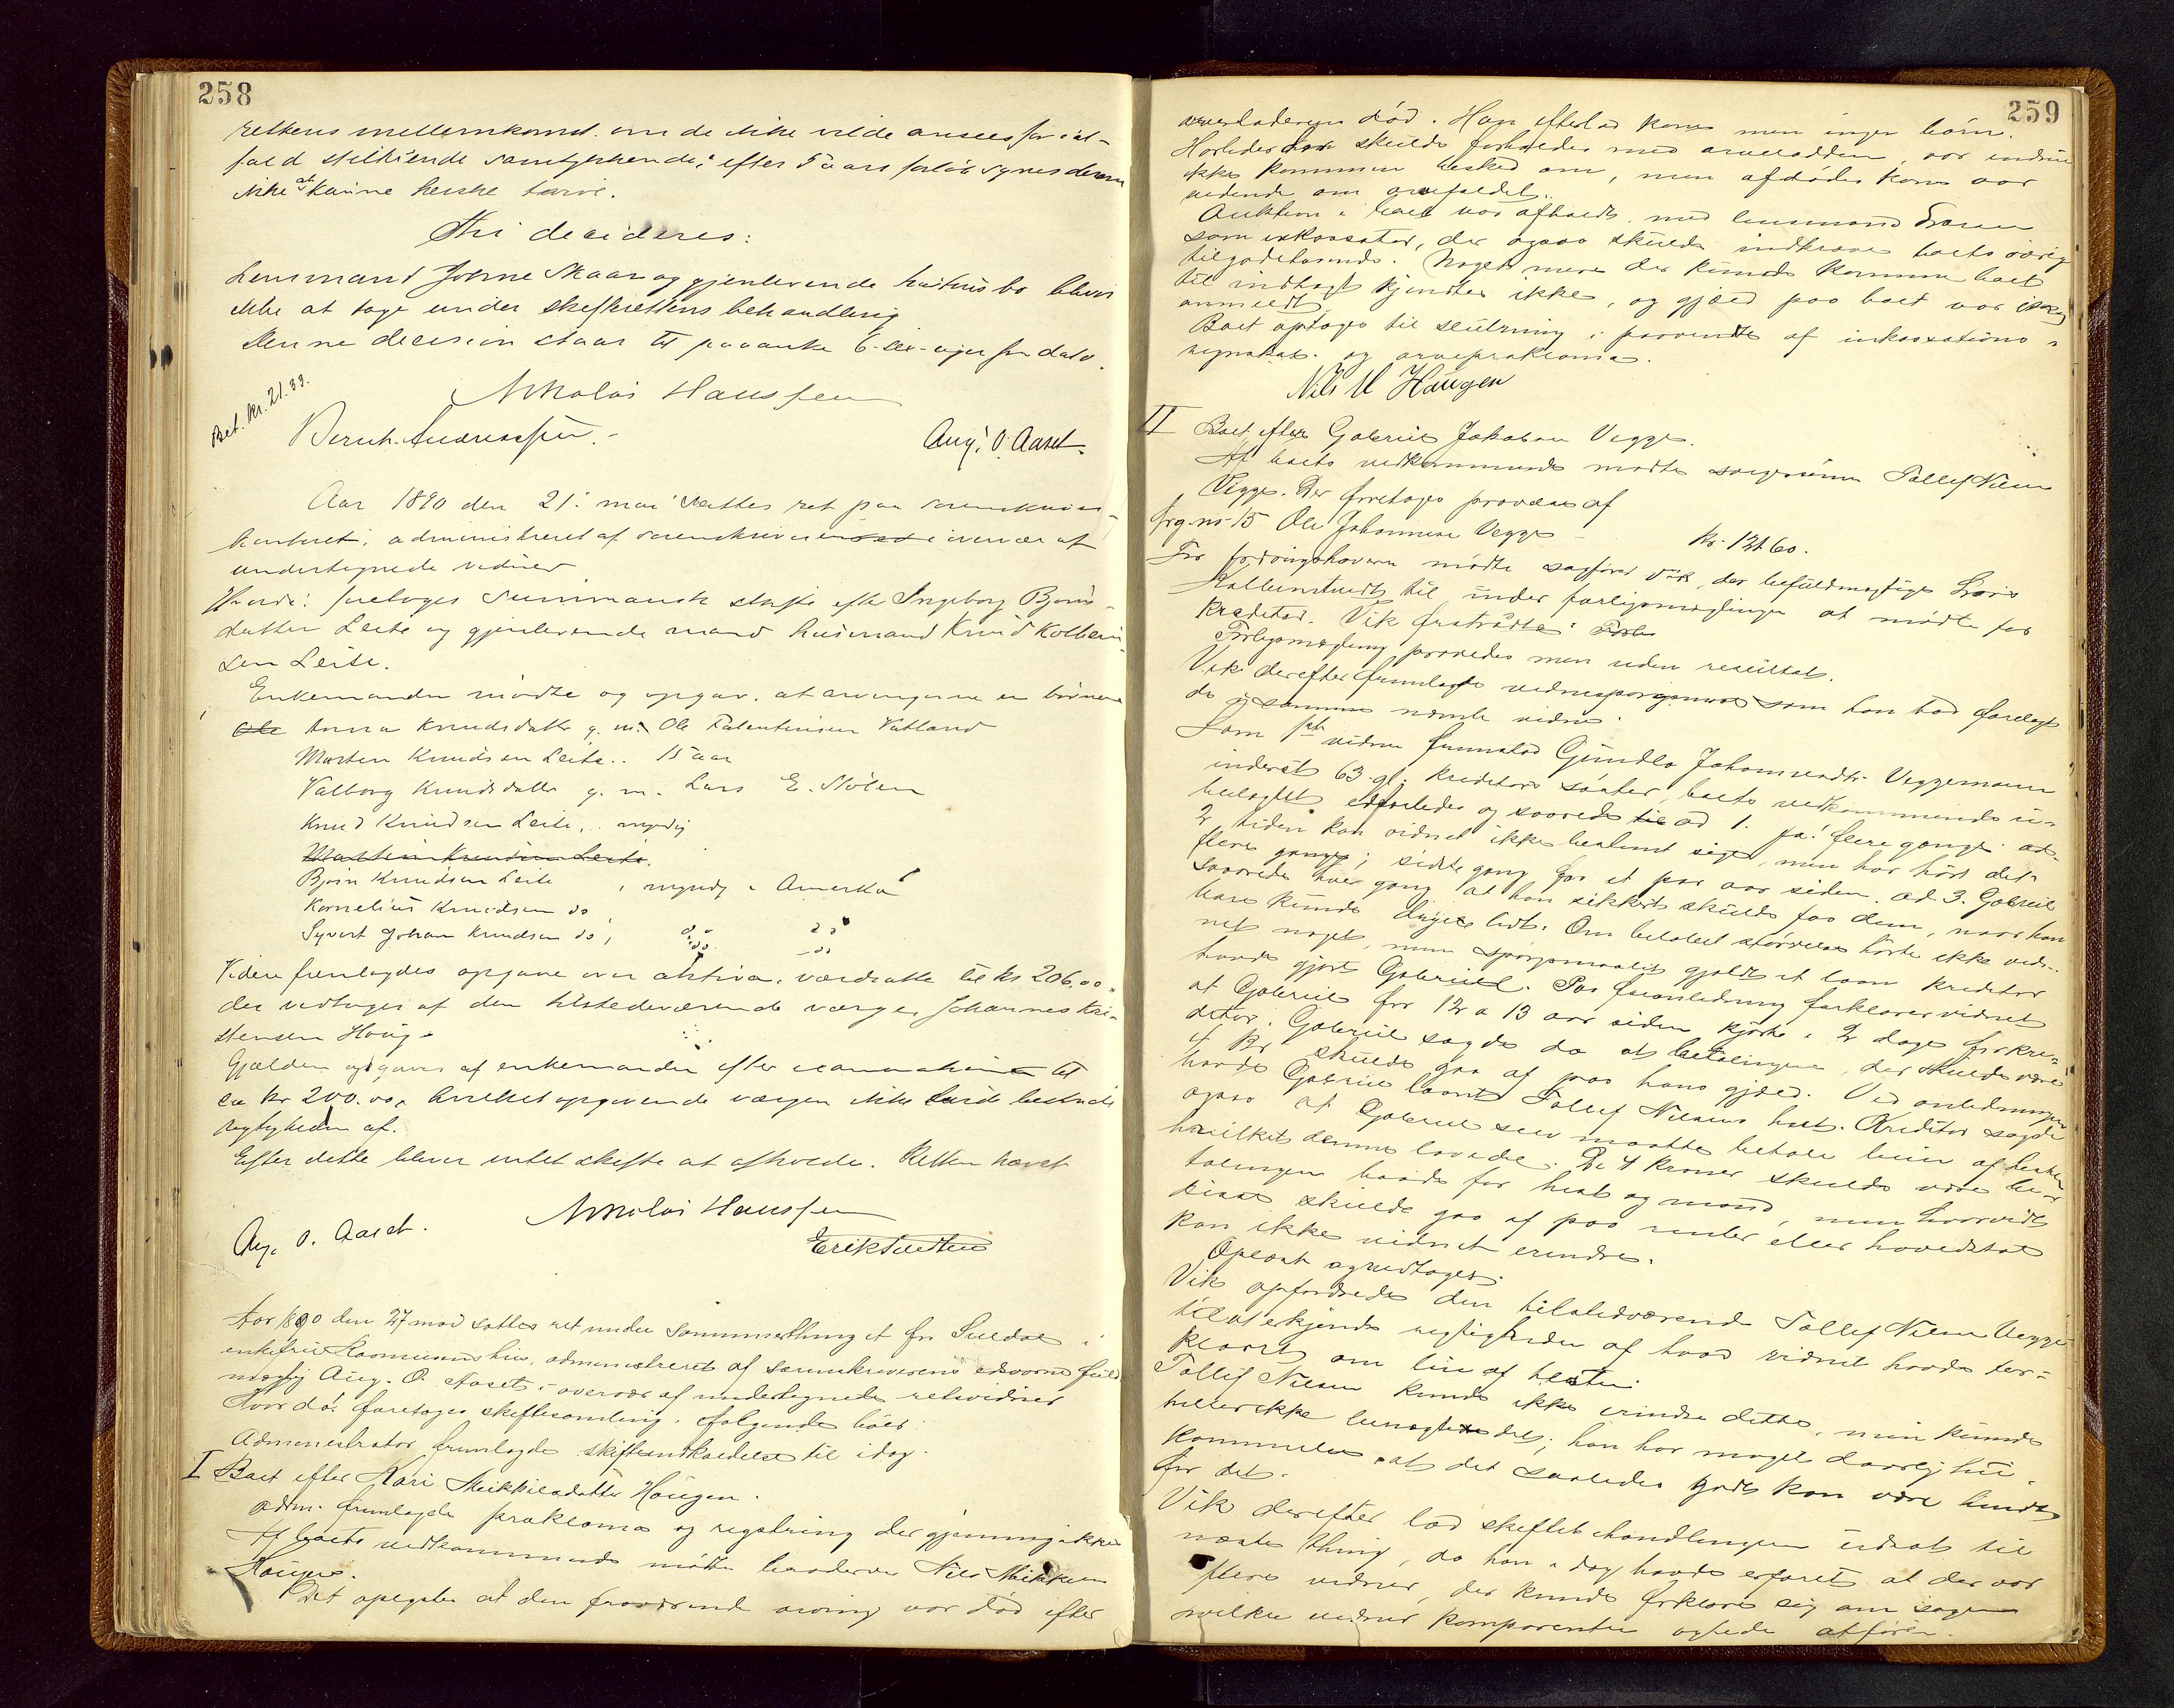 258
rettens mellemkomst. om de ikke vilde ansees for i at-
fald stiltiende samtykkende; efter 5 aars forløb synes denne
ikke at kunne herske tarve.
Thi decideres:
Lensmand Joene Skaar og gjenlevende hustrus bo bliver
ikke at tage under skifterettens behandling
Denne decision staar til paaanke 6-sex-uger fra dato.
Bet. Kr. 21.33.
Nikolai Haussen
Bernh. Andreassen.
Aug. O. Aaset.
Aar 1890 den 21. mai sattes ret paa sorenskriver-
kontoret, administreret af sorenskriveren i overvær af
undertegnede vidner
Hvorda: foretoges summarisk skifte efter Ingeborg Bjørns-
datter Leite og gjenlevende mand husmand Knud Kolbein-
sen Leite.
Enkemanden mødte og opgav, at arvingerne er børnene
Anna Knudsdatter g. m. Ole Valentinsen Vatland
Morten Knudsen Leite.. 15 aar
Valborg Knudsdatter g. m. Lars E. Stølen
Knud Knudsen Leite, .. myndig
Bjørn Knudsen Leite , myndig i Amerika
Kornelius Knudsen do
Syvert Johan Knudsen do, do do
Videre fremlagdes opgave over aktiva, værdsatte til kr 206.00,
der vedtages af den tilstedeværende værge, Johannes Kri-
stensen Houg.
Gjælden opgaves af enkemanden efter examination til
ca kr 200.00, hvilket opgivende værgen ikke turde bestride
rigtigheden af.
Efter dette bliver intet skifte at afholde. Retten hævet
Nikolai Haussen
Aug. O. Aaset.
Erik
Aar 1890 den 27 mai sattes ret under sommerthinget for Suldal i
enkefru Rasmussens hus, administreret af sorenskriverens edsvorne fuld-
mægtig Aug. O. Aaset i overvær af undertegnede retsvidner
Hvorda: foretoges skiftesamling i følgende boer:
Administrator fremlagde skifteindkaldelse til idag.
I Boet efter Kari Mikkelsdatter Haugen.
Adm. fremlagde proklama og registrering der gjennemgikkes
Af boets vedkommende mødte broderen Nils Mikkelsen
Haugen.
Det opgaves at den fraværende arving var død efter
259
arveladerens død. Han efterlod kone men ingen børn.
Hvorledes der skulde forholdes med arvelodden, var endnu
ikke kommen besked om, men afdødes kone var
vidende om arvefaldet.
Auktion i boet var afholdt, med lensmand
som inkassator, der ogsaa skulde indkræve boets øvrige
tilgodehavende. Noget mere der kunde komme boet
til indtægt kjendtes ikke, og gjæld paa boet var ikke
anmeldt.
Boet optages til slutning i paavente af inkassations-
regnskab og arveproklama.
Nils M Haugen
II Boet efter Gabriel Jakobsen Vegge.
Af boets vedkommende mødte svigersønnen Tollef Nilsen
Vegge. Der foretoges prøvelse af
frg. nr 15 Ole Johannesen Vegge - kr. 121.60.
For fordringshaveren mødte sagfører Vik, der befuldmægtige Lars
Kolbenstvedt til under forligsmæglingen at møde for
kreditor. Vik fratraadte.
Forligsmægling prøvedes men uden resultat.
Vik derefter fremlagde vidnespørgsmaal som han bad forelagt
de i samme nævnte vidner.
Som 1ste vidne fremstod Gundla Johannesdtr Veggemoen
inderst 63 gl. kreditors søster, boets vedkommende u-
beslægtet edfæstedes og svarede ad 1. ja! flere gange. ad
2 tiden kan vidnet ikke bestemt sige, men har hørt det
flere gange; sidste gang for et par aar siden. ad 3. Gabriel
svarede hver gang at han sikkert skulde faa dem, naar han
bare kunde drygte lidt. Om beløbet størrelse hørte ikke vid-
net noget, men spørgsmaalet gjaldt et laan kreditor
havde gjort Gabriel. Paa foranledning forklarer vidnet
at Gabriel for 12 a 13 aar siden kjørte i 2 dage for kre-
ditor. Gabriel sagde da at betalingen, der skulde være
4 kr skulde gaa af paa hans gjæld. Ved anledningen
havde Gabriel laant Tollef Nilsens hest. Kreditor sagde
ogsaa at Gabriel selv maatte betale leien af hesten
hvilket denne lovede. De 4 kroner skulde være be-
talingen baade for hest og mand, men hvorvidt
disse skulde gaa af paa renter eller hovedstol
kan ikke vidnet erindre.
Oplæst og vedtaget.
Vik opfordrede den tilstedværende Tollef Nilsen Vegge
til at erkjende rigtigheden af hvad vidnet havde for-
klaret om leie af hesten.
Tollef Nilsen kunde ikke erindre dette, men kunde
heller ikke benægte det; han har meget daarlig hu-
kommelse, at det saaledes godt kan være hændt
for det.
Vik derefter lod skiftebehandlingen udsat til
næste thing, da han i dag havde erfaret at der var
flere vidner, der kunde forklare sig om sagen
hvilke vidner komparenten agtede at føre.